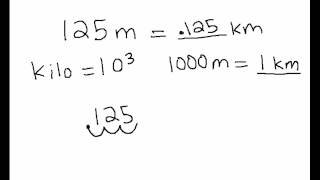 125 m = .125 km
kilo = 10³ 1000m = 1 km
.125